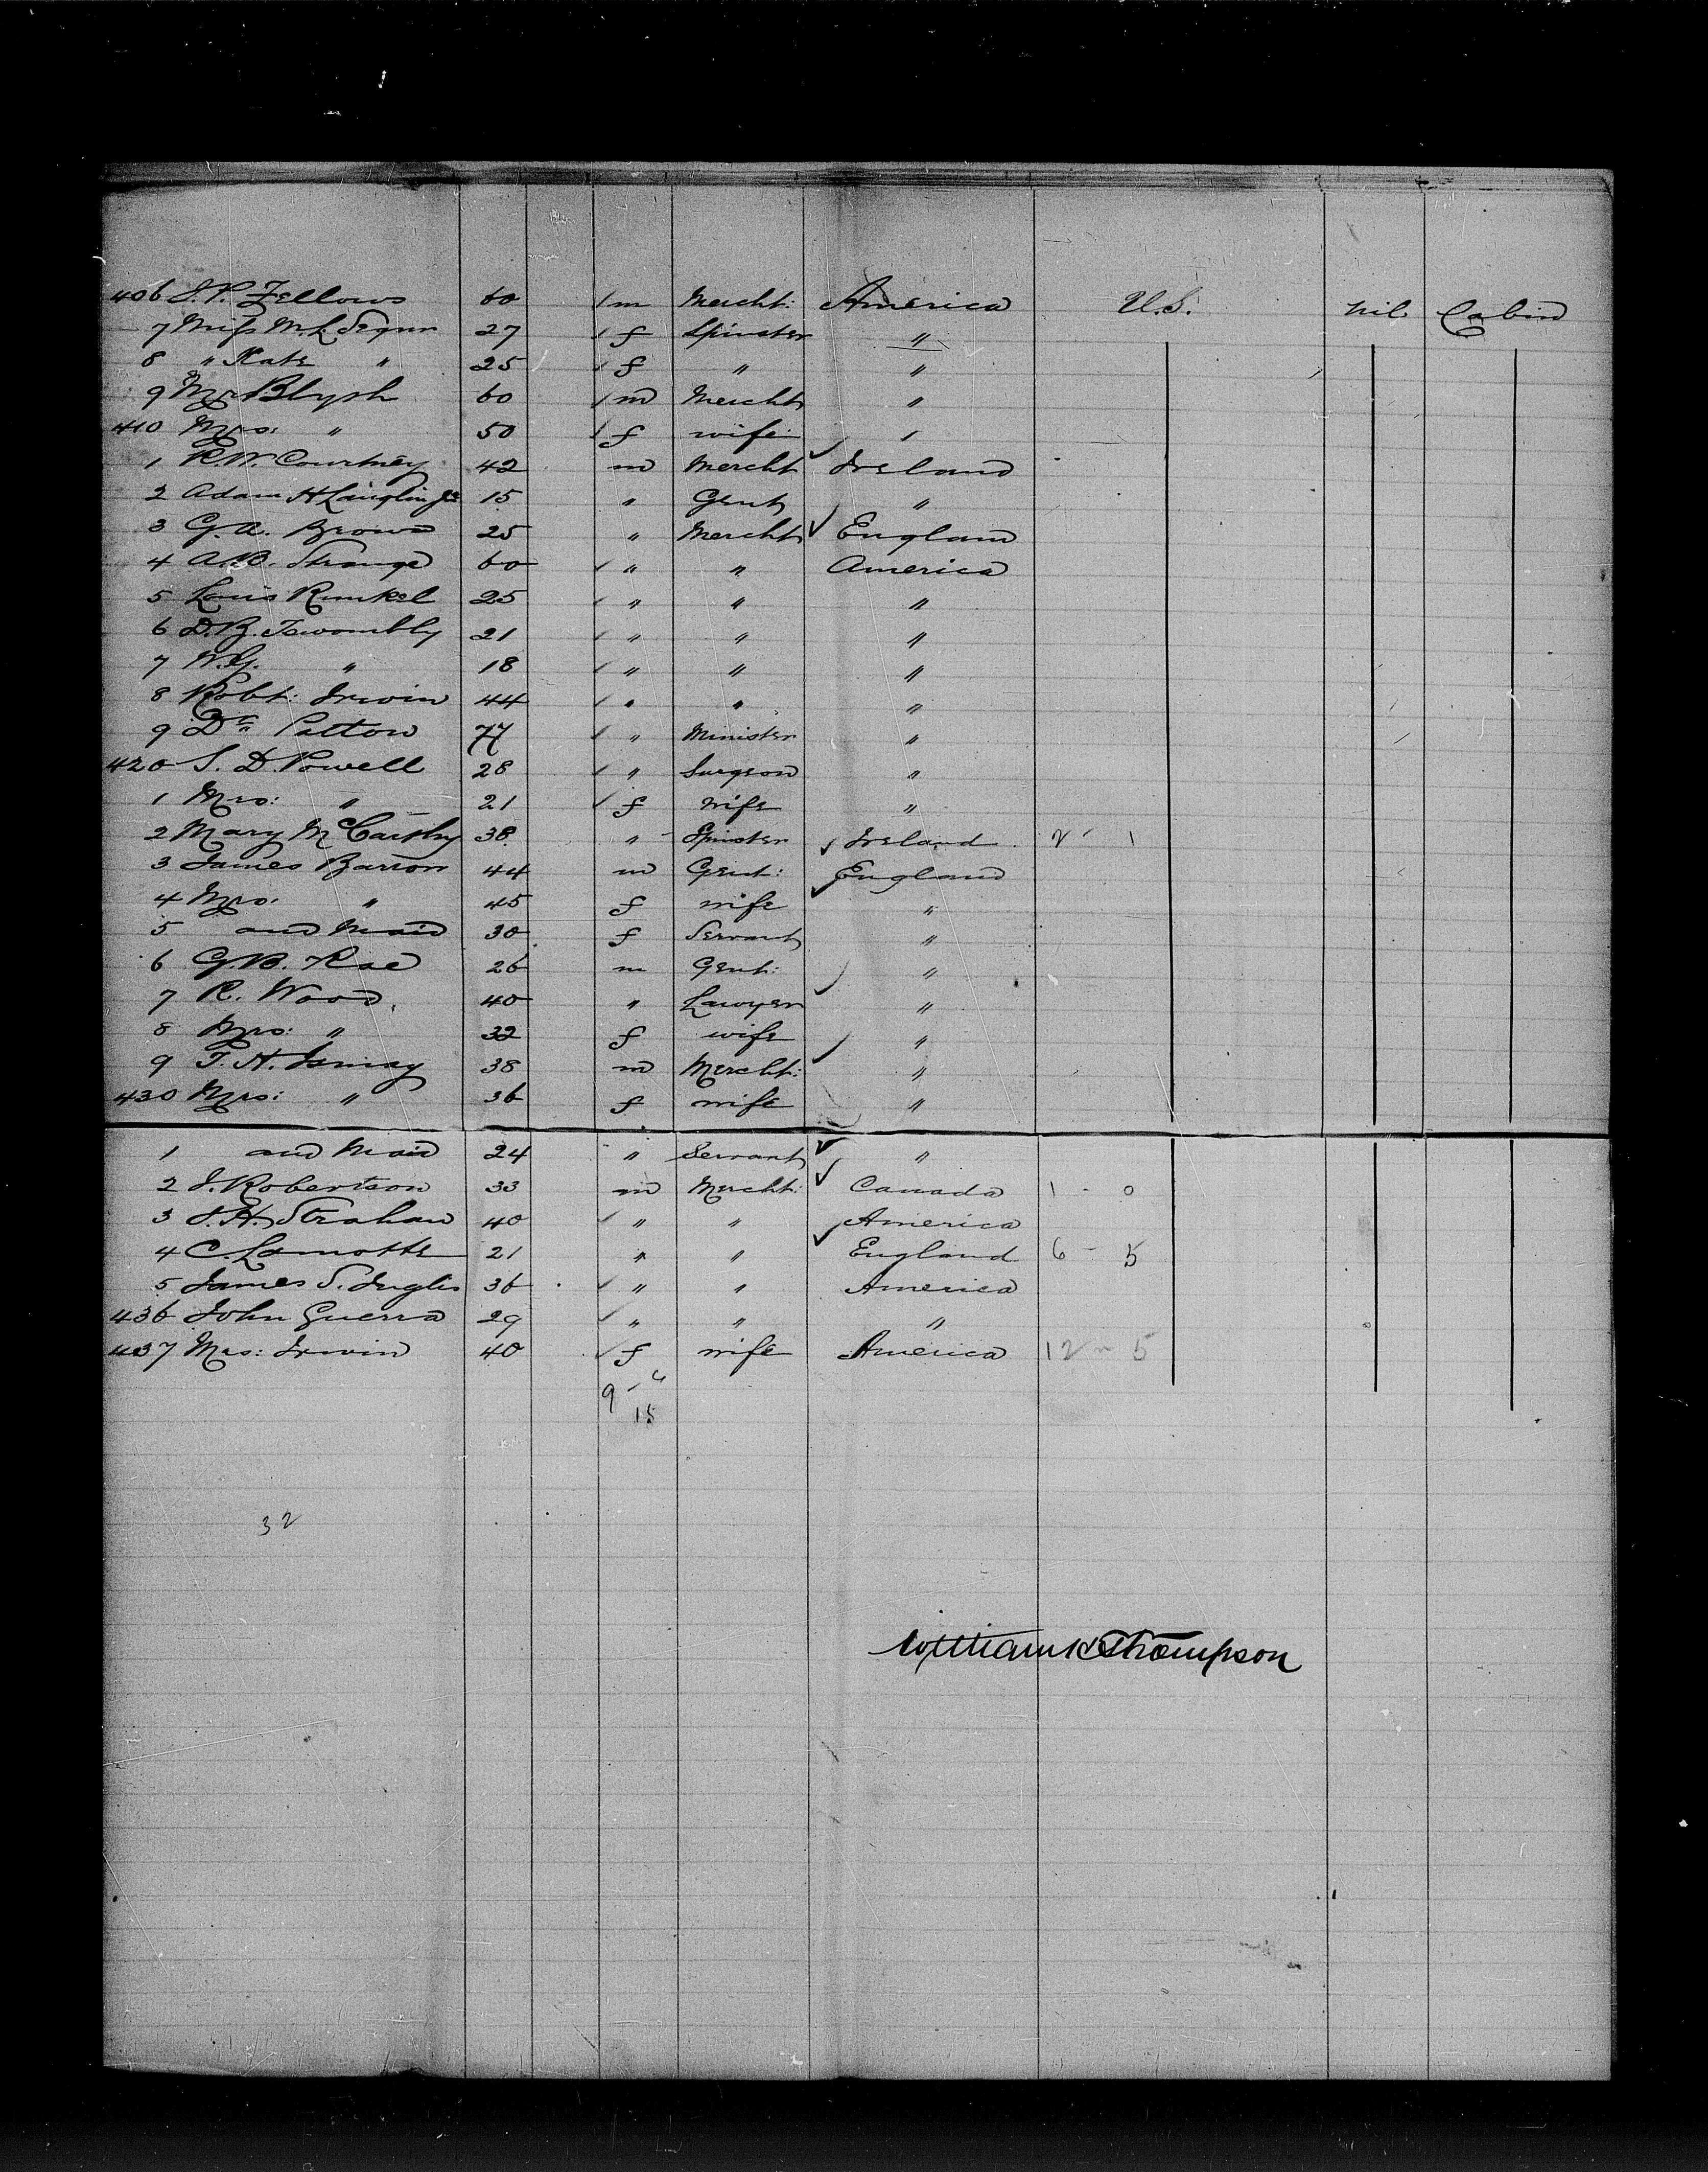 406 J. P. Fellows 60 / m Mercht: America U.S. nil Cabin
7 Miss M. L. Segur 27 / f Spinster "
8 " Kate " 25 / f " "
9 Mr Blysh 60 / m Mercht "
410 Mrs: " 50 / f wife "
1 R. W. Courtney 42 m Mercht ✓ Ireland
2 Adam H Laughlin 15 " Gent "
3 G. A. Brown 25 " Mercht ✓ England
4 A. B. Strange 60 / " " America
5 Louis Runkel 25 / " " "
6 D. B. Twombly 21 / " " "
7 W. G. " 18 / " " "
8 Robt: Irwin 44 / " " "
9 Dr Patton 77 / " Minister "
420 S. D. Powell 28 / " Surgeon "
1 Mrs: " 21 / f wife "
2 Mary McCarthy 38 " Spinster ✓ Ireland 2 1
3 James Barron 44 m Gent: England
4 Mrs. " 45 f wife ✓ "
5 and Maid 30 f Servant "
6 G. B. Rae 26 m Gent: "
7 R. Wood 40 " Lawyer ✓ "
8 Mrs: " 32 f wife "
9 T. H. Ismay 38 m Mercht: ✓ "
430 Mrs: " 36 f wife "
1 and Maid 24 " Servant ✓ "
2 J. Robertson 33 m Mercht: ✓ Canada 1 - 0
3 J. H. Strahan 40 / " " America
4 C. Lamotte 21 " " ✓ England 6 - 5
5 James S. Inglis 36 / " " America
436 John Guerra 29 / " " "
437 Mrs: Irwin 40 / f wife America 12 5
9 - 6
15
32
William H Thompson